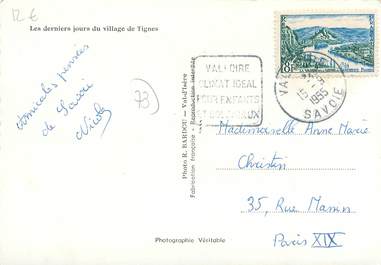 12 €
Les derniers jours du village de Tignes
amicales pensées
de Savoie
Nicole
73)
Photo R. BARDOU - Val-d'Isère
Fabrication française - Reproduction interdite
VAL-D'ISÈRE
CLIMAT IDEAL
POUR ENFANTS
8F
1955
SAVOIE
Mademoiselle Anne Marie
Christin
35, Rue Manin
Paris XIX
Photographie Véritable